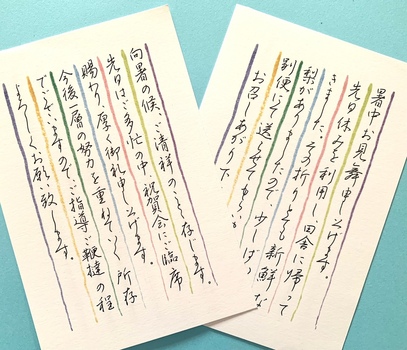 暑中お見舞申し上げます。
先日休みを利用し田舎に帰って
きました。その折、とても新鮮な
梨がありましたので、少しばかり
別便にて送らせてもらい
お召しあがり下
向暑の候、ご清祥のことと存じます。
先日はご多忙の中、祝賀会にご臨席
賜わり、厚く御礼申し上げます。
今後一層の努力を重ねていく所存
でございますので、ご指導ご鞭撻の程
よろしくお願い致します。